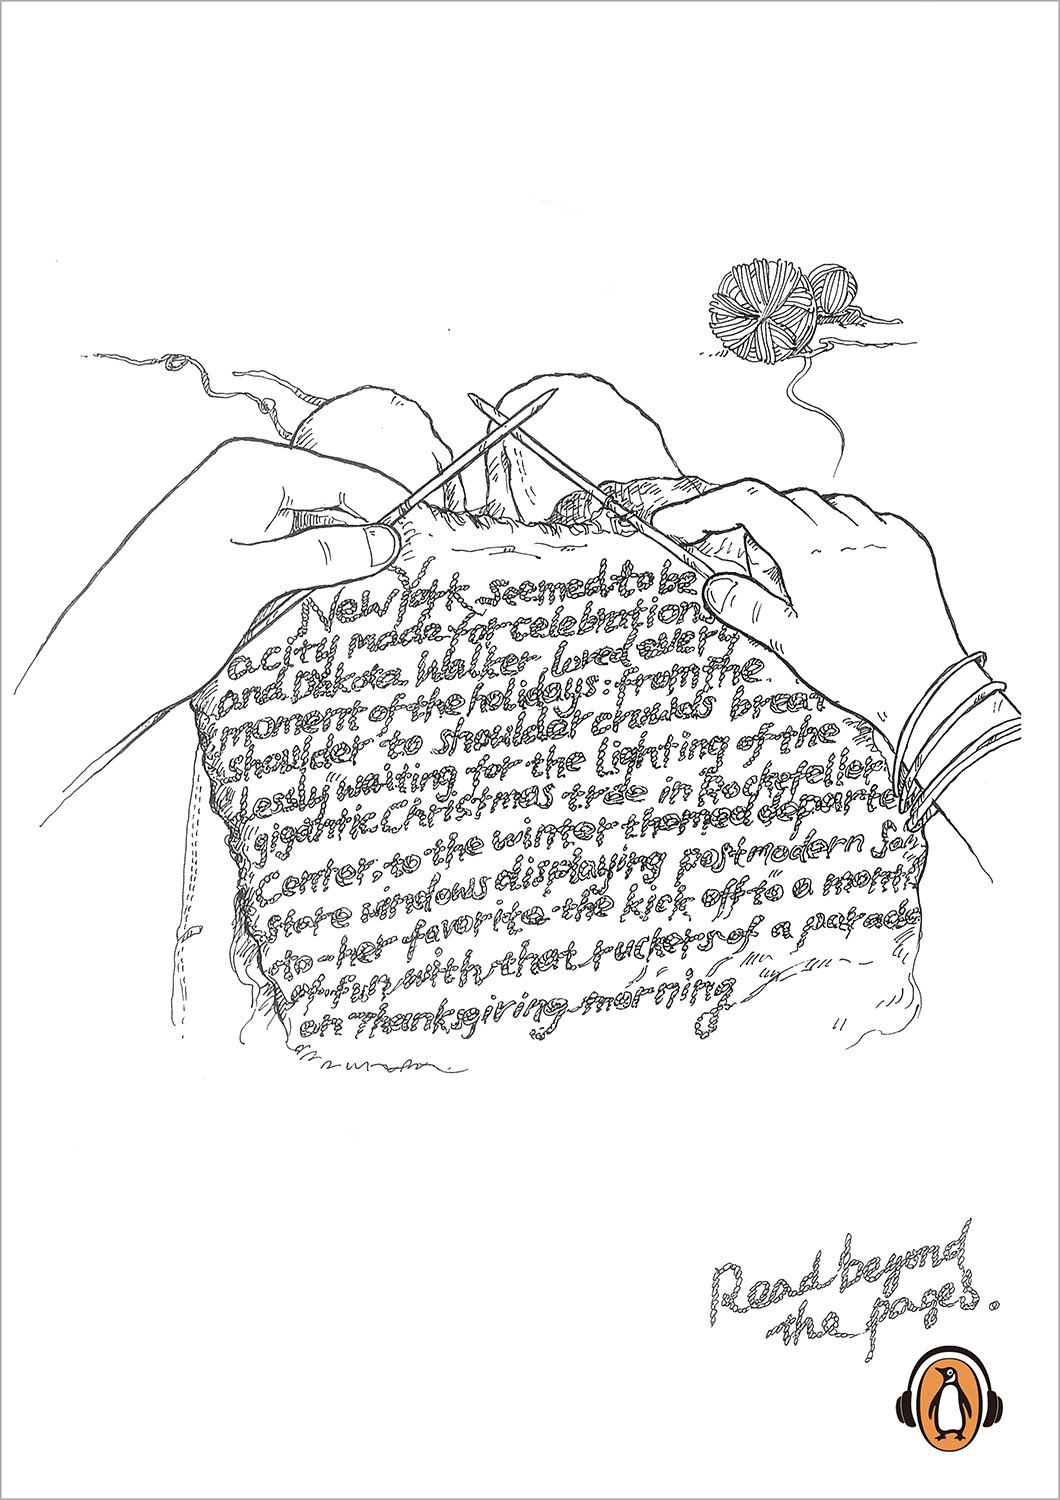 New York seemed to be
a city made for celebrations
and Dakota Walker loved every
moment of the holidays: from the
shoulder to shoulder crowds breath
lessly waiting for the lighting of the
gigantic Christmas tree in Rockefeller
Center, to the winter themed departe
store windows displaying postmodern San
to-her favorite-the kick off to a month
of fun with that ruckers of a parade
on Thanksgiving morning
Read beyond
the pages.